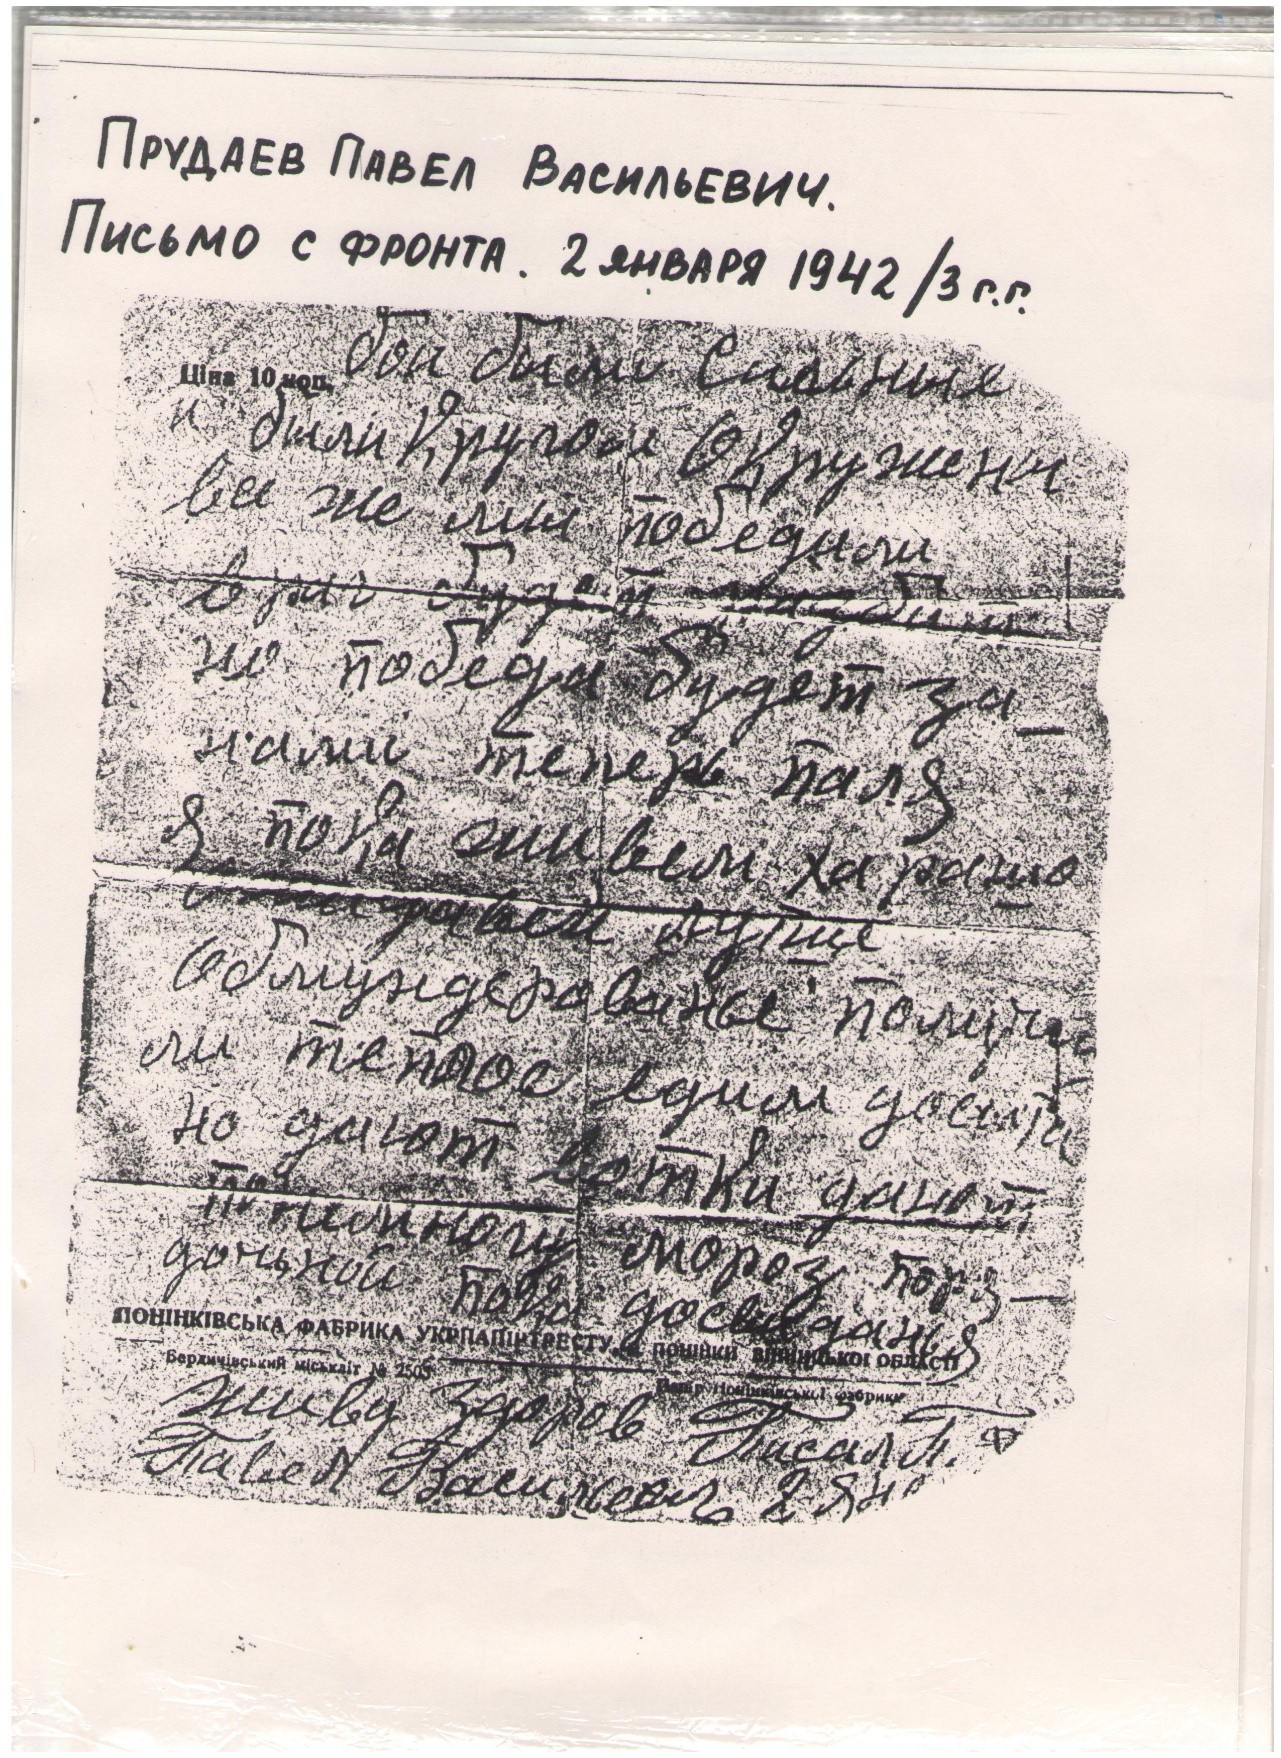 Прудаев Павел Васильевич.
Письмо с фронта. 2 января 1942/3 г.г.
бои были Сильные
Ціна 10 коп.
и были Кругом Окружени
все же мы победили
враг будет
но победа будет за
нами теперь паля
Я пока живем харашо
лутше
обмундерованье получи
ли теплое едим досыта
но дают вотки дают
понемногу мороз поря
дочьной пока досвидания
ПОНІНКІВСЬКА ФАБРИКА УКРПАПІРТРЕСТУ, ПОНІНКИ ВІННИЦЬКОЇ ОБЛАСТІ
Бердичівський міськліт № 2505
Папір Понінківської фабрики
живу здоров Писал П.
Павел Васильевич 2 Янв